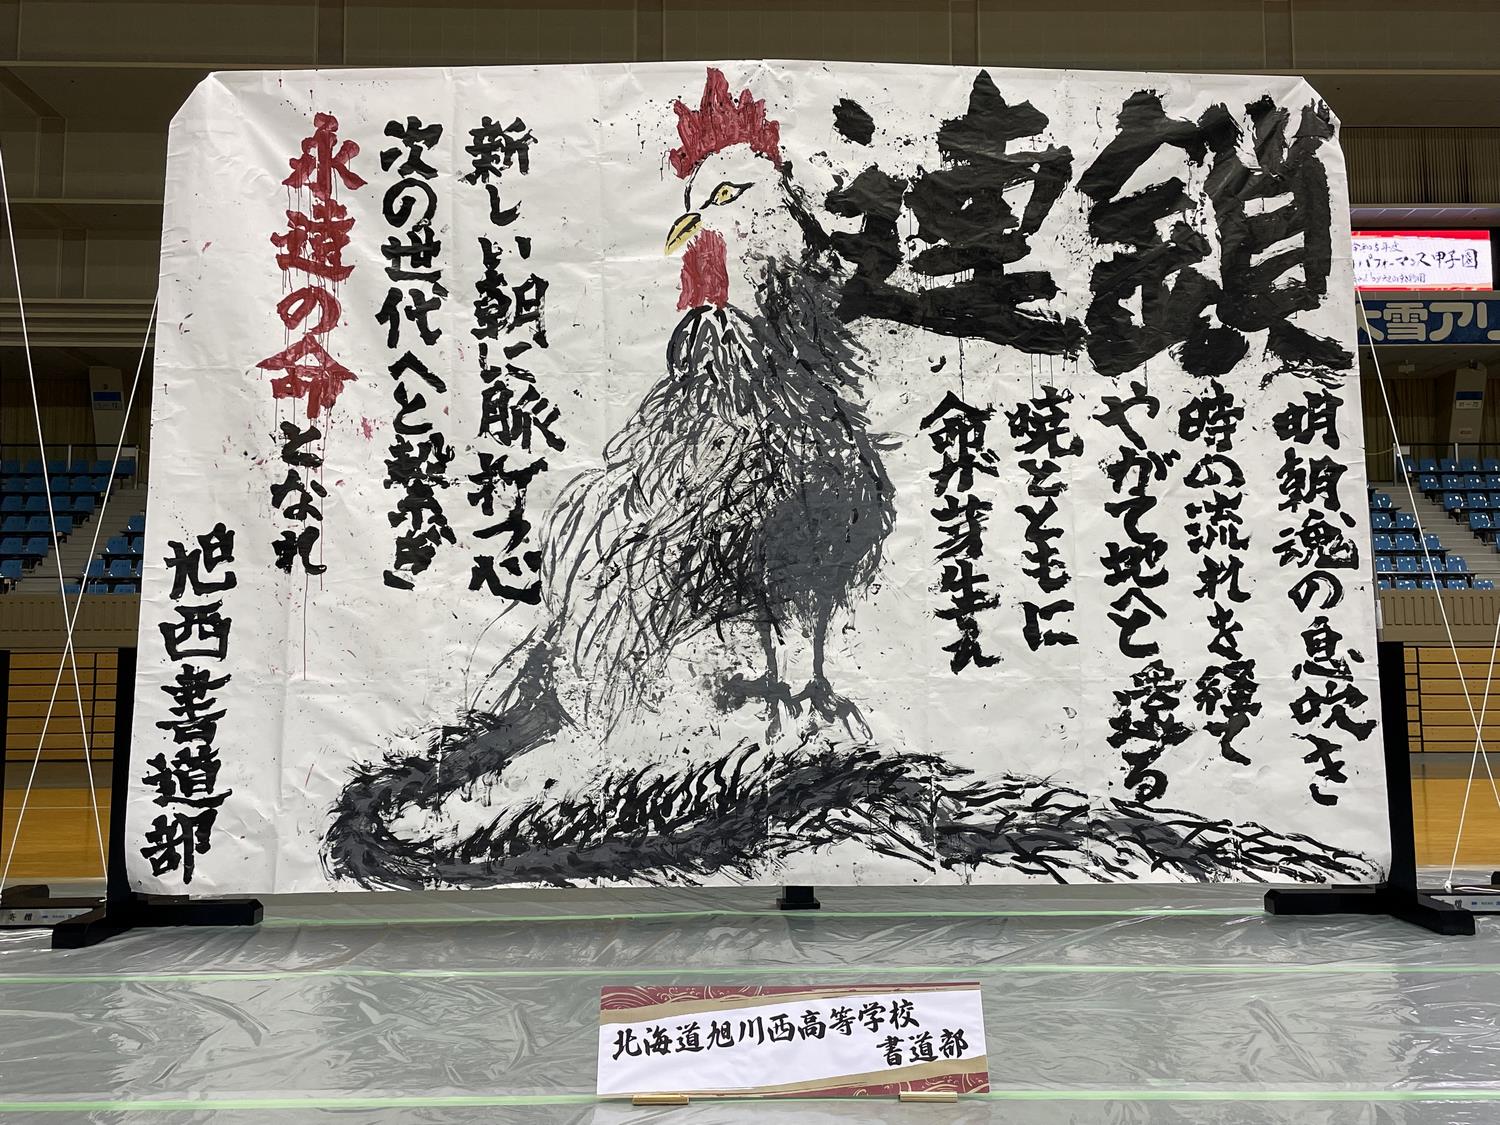 連鎖
明朝、魂の息吹き
時の流れを経て
やがて地へと還る
暁とともに
命が芽生え
新しい朝に脈打つ心
次の世代へと繋ぎ
永遠の命となれ
旭西書道部
パフォーマンス甲子園
大雪アリ
北海道旭川西高等学校
書道部